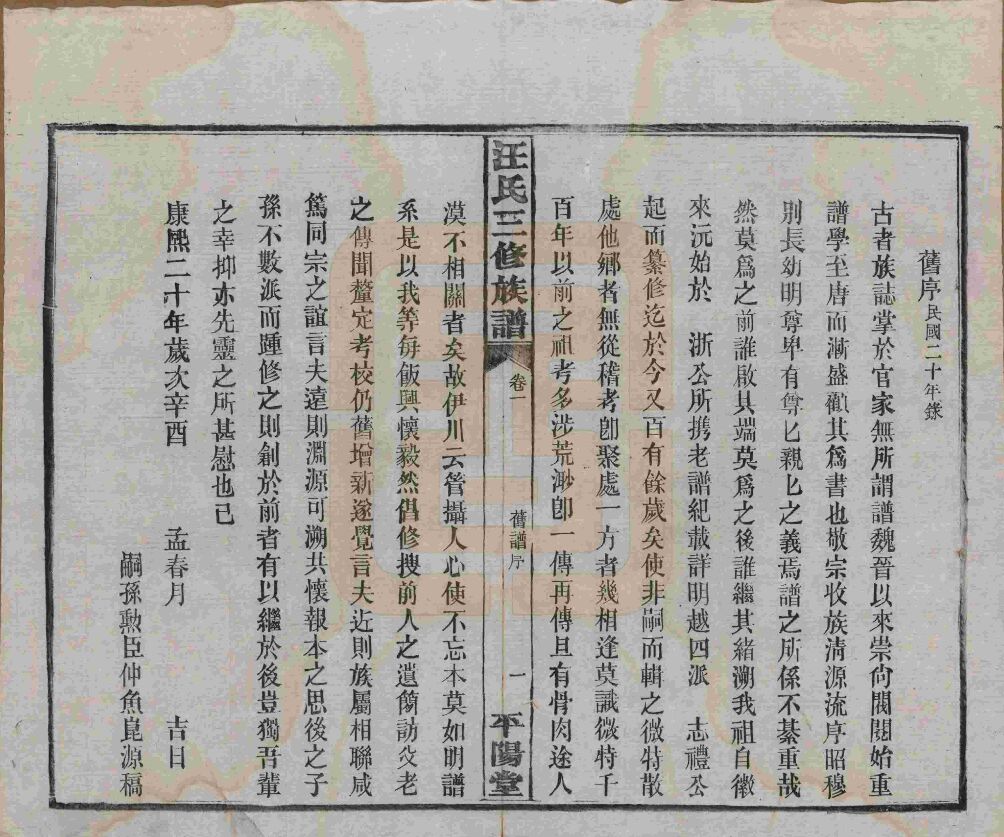 舊序民國二十年錄
古者族誌掌於官家無所謂譜魏晉以來崇尙閥閱始重
譜學至唐而漸盛觀其爲書也敬宗收族清源流序昭穆
別長幼明尊卑有尊匕親匕之義焉譜之所係不綦重哉
然莫爲之前誰啟其端莫爲之後誰繼其緒溯我祖自徽
來沅始於 浙公所携老譜紀載詳明越四派 志禮公
起而纂修迄於今又百有餘歲矣使非嗣而輯之微特散
處他鄉者無從稽考卽聚處一方者幾相逢莫識微特千
百年以前之祖考多涉荒渺卽一傳再傳且有骨肉途人
汪氏三修族譜 卷一 舊譜序 一 平陽堂
漠不相關者矣故伊川云管攝人心使不忘本莫如明譜
系是以我等每飯興懷毅然倡修搜前人之遺簡訪父老
之傳聞釐定考校仍舊增新遂覺言夫近則族屬相聯咸
篤同宗之誼言夫遠則淵源可溯共懷報本之思後之子
孫不數派而踵修之則創於前者有以繼於後豈獨吾輩
之幸抑亦先靈之所甚慰也已
康熙二十年歲次辛酉 孟春月 吉日
嗣孫勲臣仲魚崑源稿